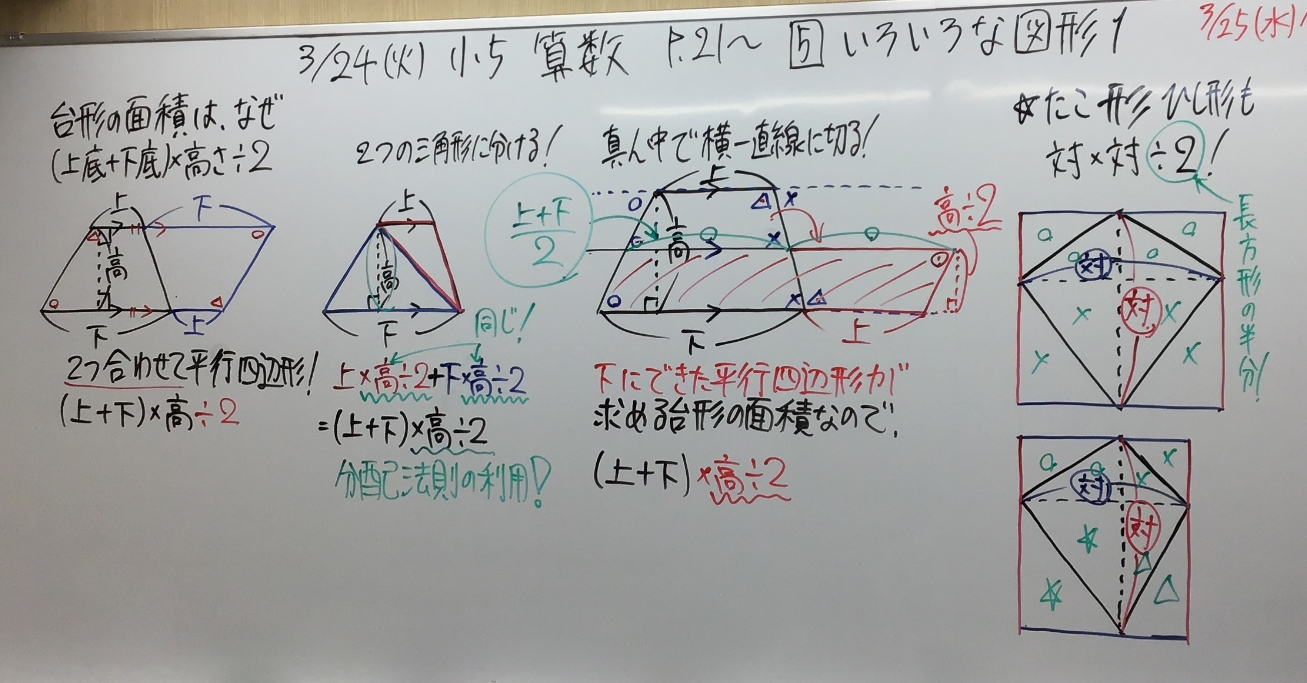 3/24(火) 小5 算数 P.21〜 5 いろいろな図形1
3/25(水)
台形の面積は、なぜ
(上底+下底)×高さ÷2
上
下
高
下
上
2つ合わせて平行四辺形!
(上+下)×高÷2
2つの三角形に分ける!
上
高
下
同じ!
上×高÷2+下×高÷2
=(上+下)×高÷2
分配法則の利用!
真ん中で横一直線に切る!
上
上+下
2
高
高÷2
下
上
下にできた平行四辺形が
求める台形の面積なので、
(上+下)×高÷2
☆たこ形 ひし形も
対×対÷2!
長方形の半分!
対
対
対
対